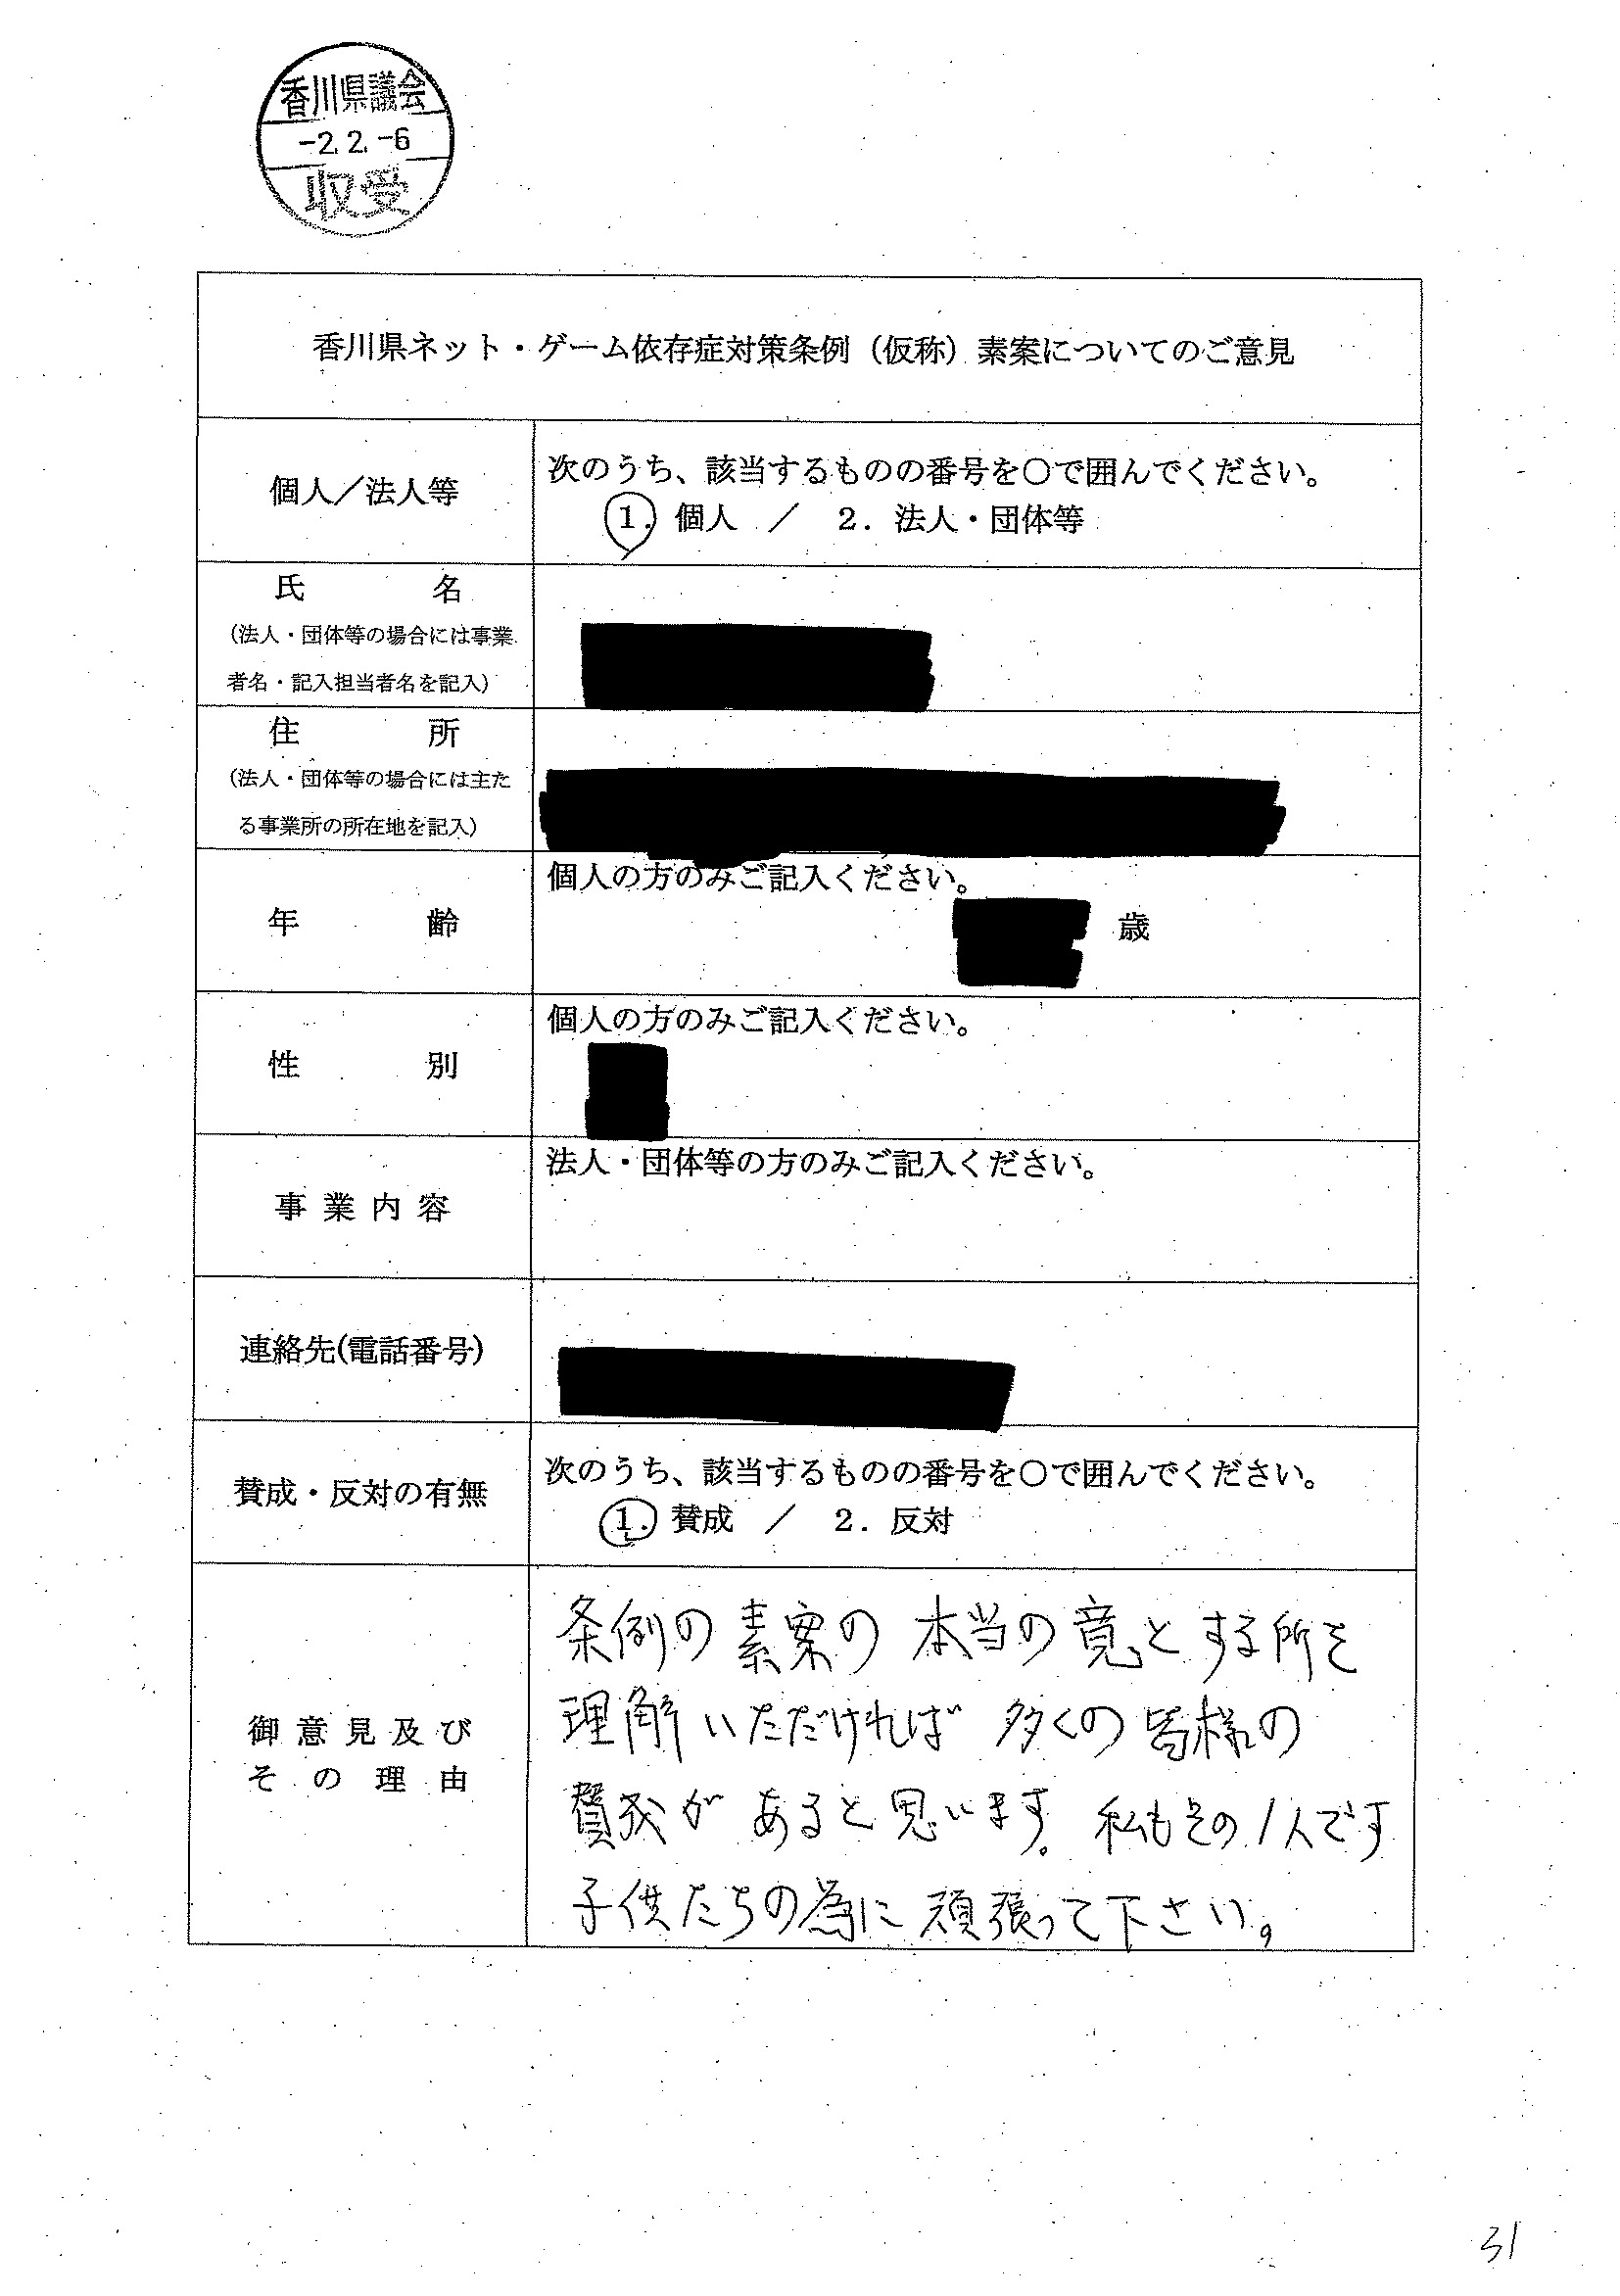 香川県議会
-2.2.-6
収受
香川県ネット・ゲーム依存症対策条例（仮称）素案についてのご意見
個人／法人等
次のうち、該当するものの番号を○で囲んでください。
1．個人　／　2．法人・団体等
氏　名
（法人・団体等の場合には事業
者名・記入担当者名を記入）
住　所
（法人・団体等の場合には主た
る事業所の所在地を記入）
年　齢
個人の方のみご記入ください。
歳
性　別
個人の方のみご記入ください。
事業内容
法人・団体等の方のみご記入ください。
連絡先(電話番号)
賛成・反対の有無
次のうち、該当するものの番号を○で囲んでください。
1．賛成　／　2．反対
御意見及び
その理由
条例の素案の本当の意とする所を
理解いただければ 多くの皆様の
賛成があると思います。私もその1人です
子供たちの為に頑張って下さい。
31